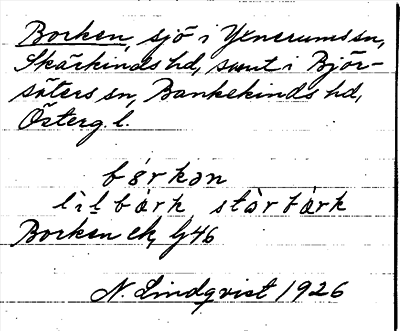 Borken, sjö i Yxnerums sn,
Skärkinds hd, samt i Björ-
säters sn, Bankekinds hd,
Österg. l.
bòrkən
lìl bàrk, stòr bàrk
Borken ek, G 46
N. Lindqvist 1926